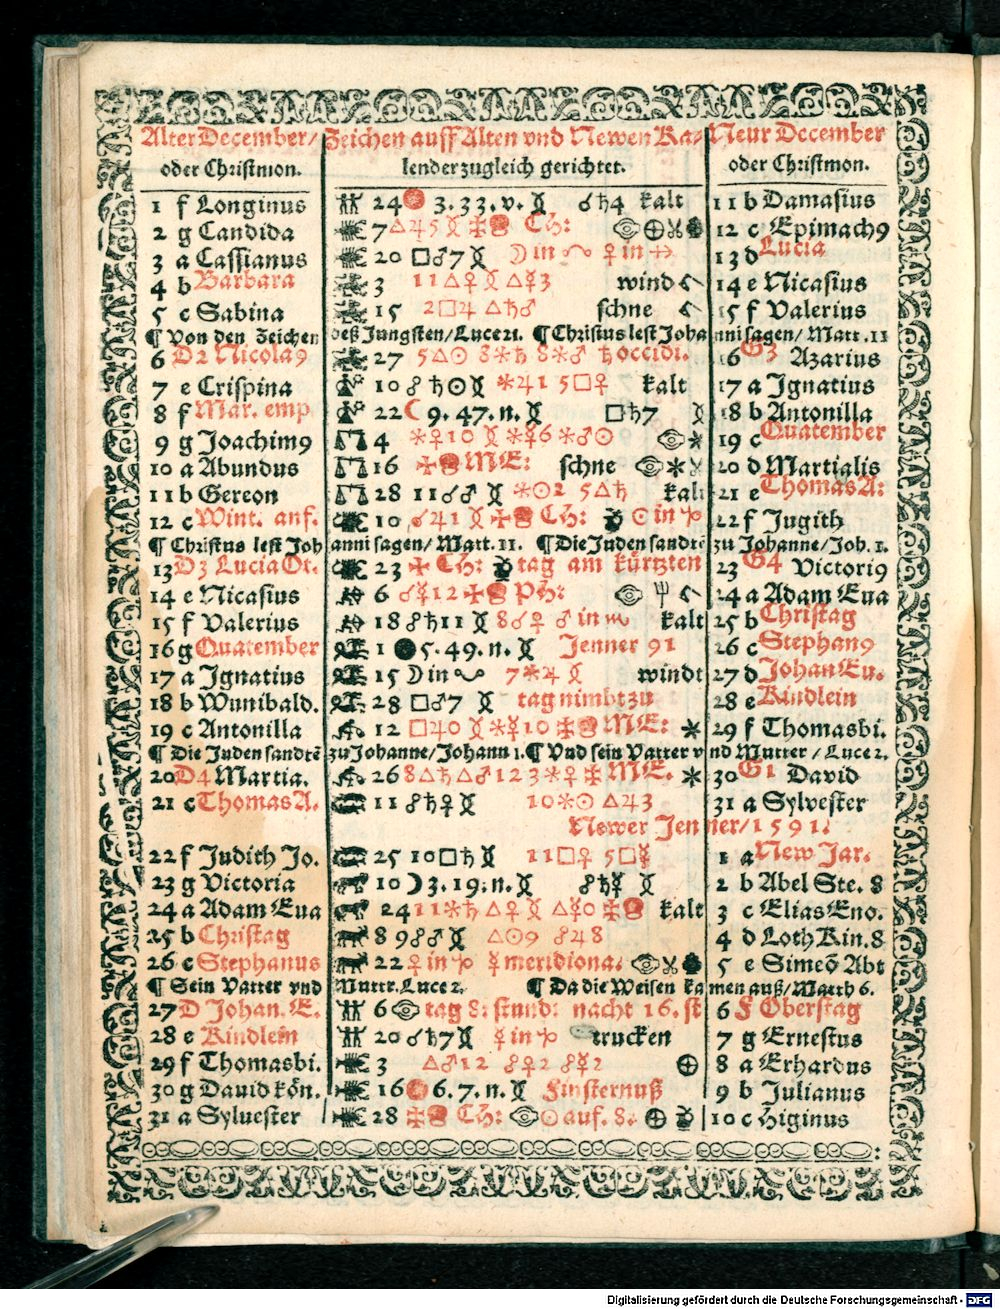 Alter December/ Zeichen auff Alten vnd Newen Ka- Neur December
oder Christmon. lender zugleich gerichtet. oder Christmon.
1 f Longinus 24 3.33.v. ☿ ☌♄4 kalt 11 b Damasius
2 g Candida 7△♃5☿ ✠ Ch: ⊕ 12 c Epimach9
3 a Cassianus 20 □♂7☿ ☽in ♀in 13 d Lucia
4 b Barbara 3 11△♀☿△☿3 wind 14 e Nicasius
5 c Sabina 15 2□♃ △♄♂ schne 15 f Valerius
¶ Von den Zeichen deß Jungsten/Luce 21. ¶ Christus lest Johanni sagen/ Matt. 11
6 D2 Nicola9 27 5△☉ 8✶♄ 8✶♂ ♄occidi. 16 G3 Azarius
7 e Crispina 10 ☍♄☉☿ ✶♃1 5□♀ kalt 17 a Jgnatius
8 f Mar. emp 22☾9.47.n.☿ □♄7 ☿ 18 b Antonilla
9 g Joachim9 4 ✶♀10☿✶☿6 ✶♂☉ ✶ 19 c Quatember
10 a Abundus 16 ✠ ME: schne ✶ 20 d Martialis
11 b Gereon 28 11☌♂☿ ✶☉2 5△♄ kalt 21 e Thomas A:
12 c Wint. anf. 10 ☌♃1☿✠ Ch: ☉in♑ 22 f Jugith
¶ Christus lest Johanni sagen/ Matt. 11. ¶ Die Juden sandtē zu Johanne/Joh. 1.
13 D3 Lucia Ot. 23 ✠ Ch: tag am kürtzten 23 G4 Victori9
14 e Nicasius 6 ☌☿12✠ Ph: 24 a Adam Eua
15 f Valerius 18☍♄11☿8☌♀ ♂in♏ kalt 25 b Christag
16 g Quatember 1 ●5.49.n.☿ Jenner 91 26 c Stephan9
17 a Jgnatius 15☽in 7✶♃☿ windt 27 d Johan Eu.
18 b Wunibald. 28 □♂7☿ tag nimbt zu 28 e Kindlein
19 c Antonilla 12 □♃0☿✶☿10✠ ME: ✶ 29 f Thomasbi.
¶ Die Juden sandtē zu Johanne/Johann 1. ¶ Vnd sein Vatter vnd Mutter / Luce 2.
20 D4 Martia. 26 8△♄△♂12 3✶♀✠ ME. ✶ 30 G1 David
21 c Thomas A. 11☍♄♀☿ 10✶☉ △♃3 31 a Sylvester
Newer Jenner/1591.
22 f Judith Jo. 25 10□♄☿ 11□♀ 5□☿ 1 a New Jar.
23 g Victoria 10☽3.19.n.☿ ☍♄☿ ☿ 2 b Abel Ste. 8
24 a Adam Eua 24 11✶♄△♀☿△☿0✠ kalt 3 c Elias Eno.
25 b Christag 8 9☍♂☿ △☉9 ☍♃8 4 d Loth Kin. 8
26 c Stephanus 22♀in♑ ☿meridiona. 5 e Simeō Abt
¶ Sein Vatter vnd Muttr. Luce 2. ¶ Da die Weisen kamen auß/Matth 6.
27 D Johan. E. 6 tag 8: stund: nacht 16. st 6 F Oberstag
28 e Kindlein 20☌♄7☿ ☿in♑ trucken 7 g Ernestus
29 f Thomasbi. 3 △♂12 ☍♀2 ☍☿2 ⊕ 8 a Erhardus
30 g David kön. 16 6.7.n.☿ Finsternuß 9 b Julianus
31 a Sylvester 28 ✠ Ch: ☉auf. 8. ⊕ 10 c Higinus
Digitalisierung gefördert durch die Deutsche Forschungsgemeinschaft - DFG